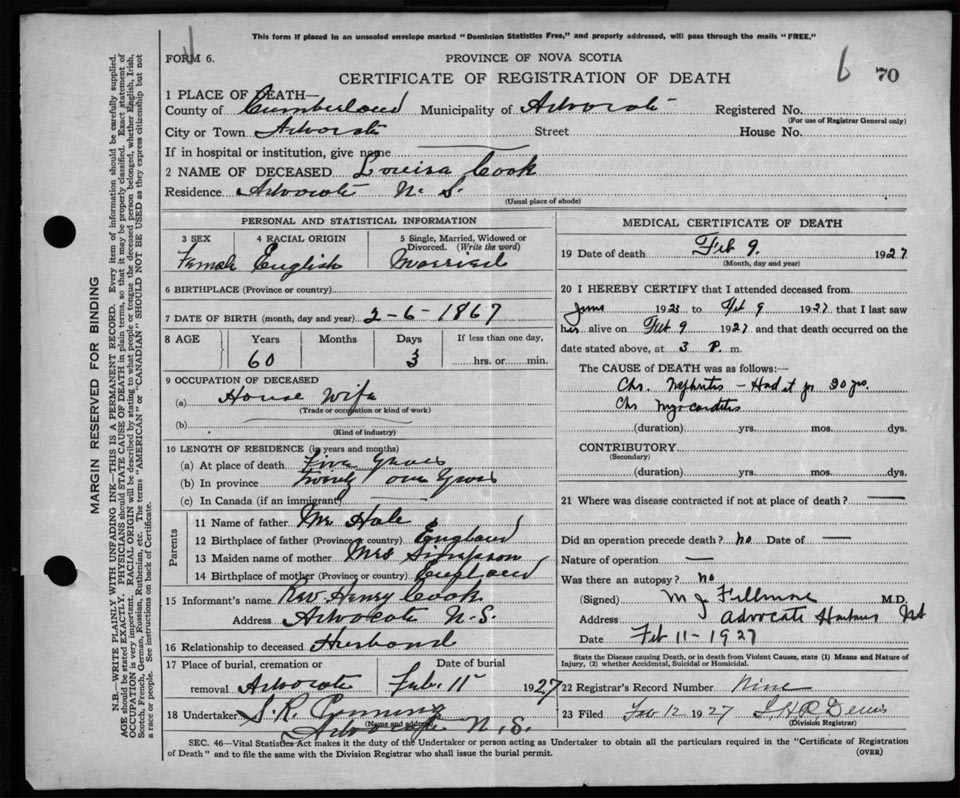 This form if placed in an unsealed envelope marked "Dominion Statistics Free," and properly addressed, will pass through the mails "FREE."
FORM 6.
PROVINCE OF NOVA SCOTIA
6 70
CERTIFICATE OF REGISTRATION OF DEATH
1 PLACE OF DEATH—
County of Cumberland Municipality of Advocate Registered No.
(For use of Registrar General only)
City or Town Advocate Street House No.
If in hospital or institution, give name
2 NAME OF DECEASED Louisa Cook
Residence Advocate N. S.
(Usual place of abode)
PERSONAL AND STATISTICAL INFORMATION
3 SEX 4 RACIAL ORIGIN 5 Single, Married, Widowed or Divorced. (Write the word)
Female English Married
6 BIRTHPLACE (Province or country)
7 DATE OF BIRTH (month, day and year) 2-6-1867
8 AGE Years Months Days If less than one day,
60 3 hrs. or min.
9 OCCUPATION OF DECEASED
(a) House Wife
(Trade or occupation or kind of work)
(b)
(Kind of industry)
10 LENGTH OF RESIDENCE (in years and months)
(a) At place of death Five years
(b) In province Twenty one years
(c) In Canada (if an immigrant)
Parents
11 Name of father Mr. Hale
12 Birthplace of father (Province or country) England
13 Maiden name of mother Mrs Simpson
14 Birthplace of mother (Province or country) England
15 Informant's name Rev. Henry Cook
Address Advocate N.S.
16 Relationship to deceased Husband
17 Place of burial, cremation or removal Advocate Date of burial Feb. 11 1927
18 Undertaker S. R.
(Name and address)
Advocate N.S.
MEDICAL CERTIFICATE OF DEATH
19 Date of death Feb 9. 1927
(Month, day and year)
20 I HEREBY CERTIFY that I attended deceased from
June 1923 to Feb 9 1927 that I last saw
her alive on Feb 9 1927 and that death occurred on
date stated above, at 3 P. m.
The CAUSE of DEATH was as follows:—
Chr. Nephritis – Had it for 20 yrs.
Chr Myocarditis
(duration) yrs. mos. dys.
CONTRIBUTORY
(Secondary)
(duration) yrs. mos. dys.
21 Where was disease contracted if not at place of death?
Did an operation precede death? no Date of —
Nature of operation —
Was there an autopsy? no
(Signed) M J Fillmore M.D.
Address Advocate Harbour N.S
Date Feb 11-1927
State the Disease causing Death, or in death from Violent Causes, state (1) Means and Nature of Injury, (2) whether Accidental, Suicidal or Homicidal.
22 Registrar's Record Number Nine
23 Filed Feb 12 1927
(Division Registrar)
SEC. 46—Vital Statistics Act makes it the duty of the Undertaker or person acting as Undertaker to obtain all the particulars required in the "Certificate of Registration
of Death" and to file the same with the Division Registrar who shall issue the burial permit. (OVER)
MARGIN RESERVED FOR BINDING
N.B.—WRITE PLAINLY WITH UNFADING INK—THIS IS A PERMANENT RECORD. Every item of information should be carefully supplied.
AGE should be stated EXACTLY. PHYSICIANS should STATE CAUSE OF DEATH in plain terms, so that it may be properly classified. Exact statement of
OCCUPATION is very important. RACIAL ORIGIN will be described by stating to what people or tongue the deceased person belonged, whether English, Irish,
Scotch, French, German, Russian, Ruthenian, etc. The terms "AMERICAN" or "CANADIAN" SHOULD NOT BE USED as they express citizenship but not
a race or people. See instructions on back of Certificate.